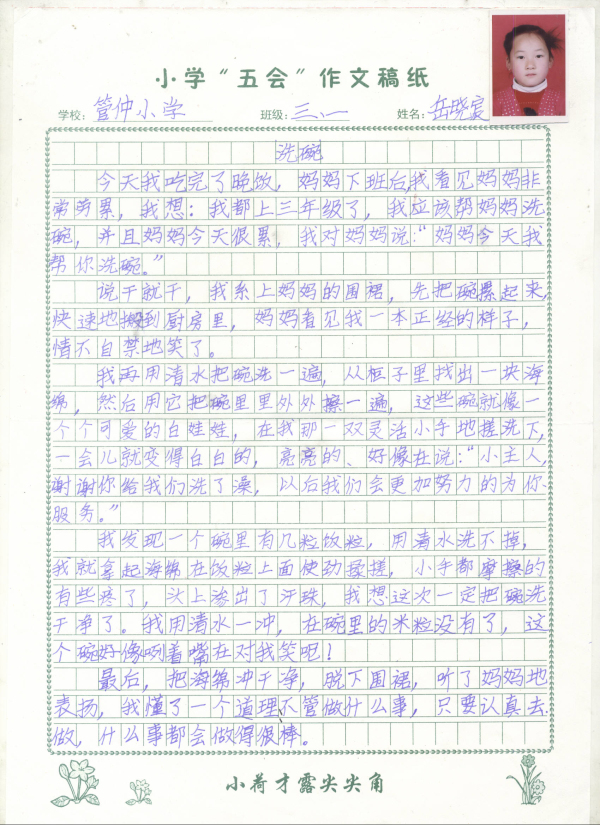 小学“五会”作文稿纸
学校：管仲小学 班级：三、一 姓名：岳晓宸
洗碗
今天我吃完了晚饭，妈妈下班后，我看见妈妈非
常劳累，我想：我都上三年级了，我应该帮妈妈洗
碗，并且妈妈今天很累，我对妈妈说：“妈妈今天我
帮你洗碗。”
说干就干，我系上妈妈的围裙，先把碗摞起来，
快速地搬到厨房里，妈妈看见我一本正经的样子，
情不自禁地笑了。
我再用清水把碗洗一遍，从柜子里找出一块海
绵，然后用它把碗里里外外擦一遍，这些碗就像一
个个可爱的白娃娃，在我那一双灵活小手地搓洗下，
一会儿就变得白白的，亮亮的、好像在说：“小主人，
谢谢你给我们洗了澡，以后我们会更加努力的为你
服务。”
我发现一个碗里有几粒饭粒，用清水洗不掉，
我就拿起海绵在饭粒上面使劲揉搓，小手都摩擦的
有些疼了，头上渗出了汗珠，我想这次一定把碗洗
干净了。我用清水一冲，在碗里的米粒没有了，这
个碗好像咧着嘴在对我笑呢！
最后，把海绵冲干净，脱下围裙，听了妈妈地
表扬，我懂了一个道理不管做什么事，只要认真去
做，什么事都会做得很棒。
小荷才露尖尖角